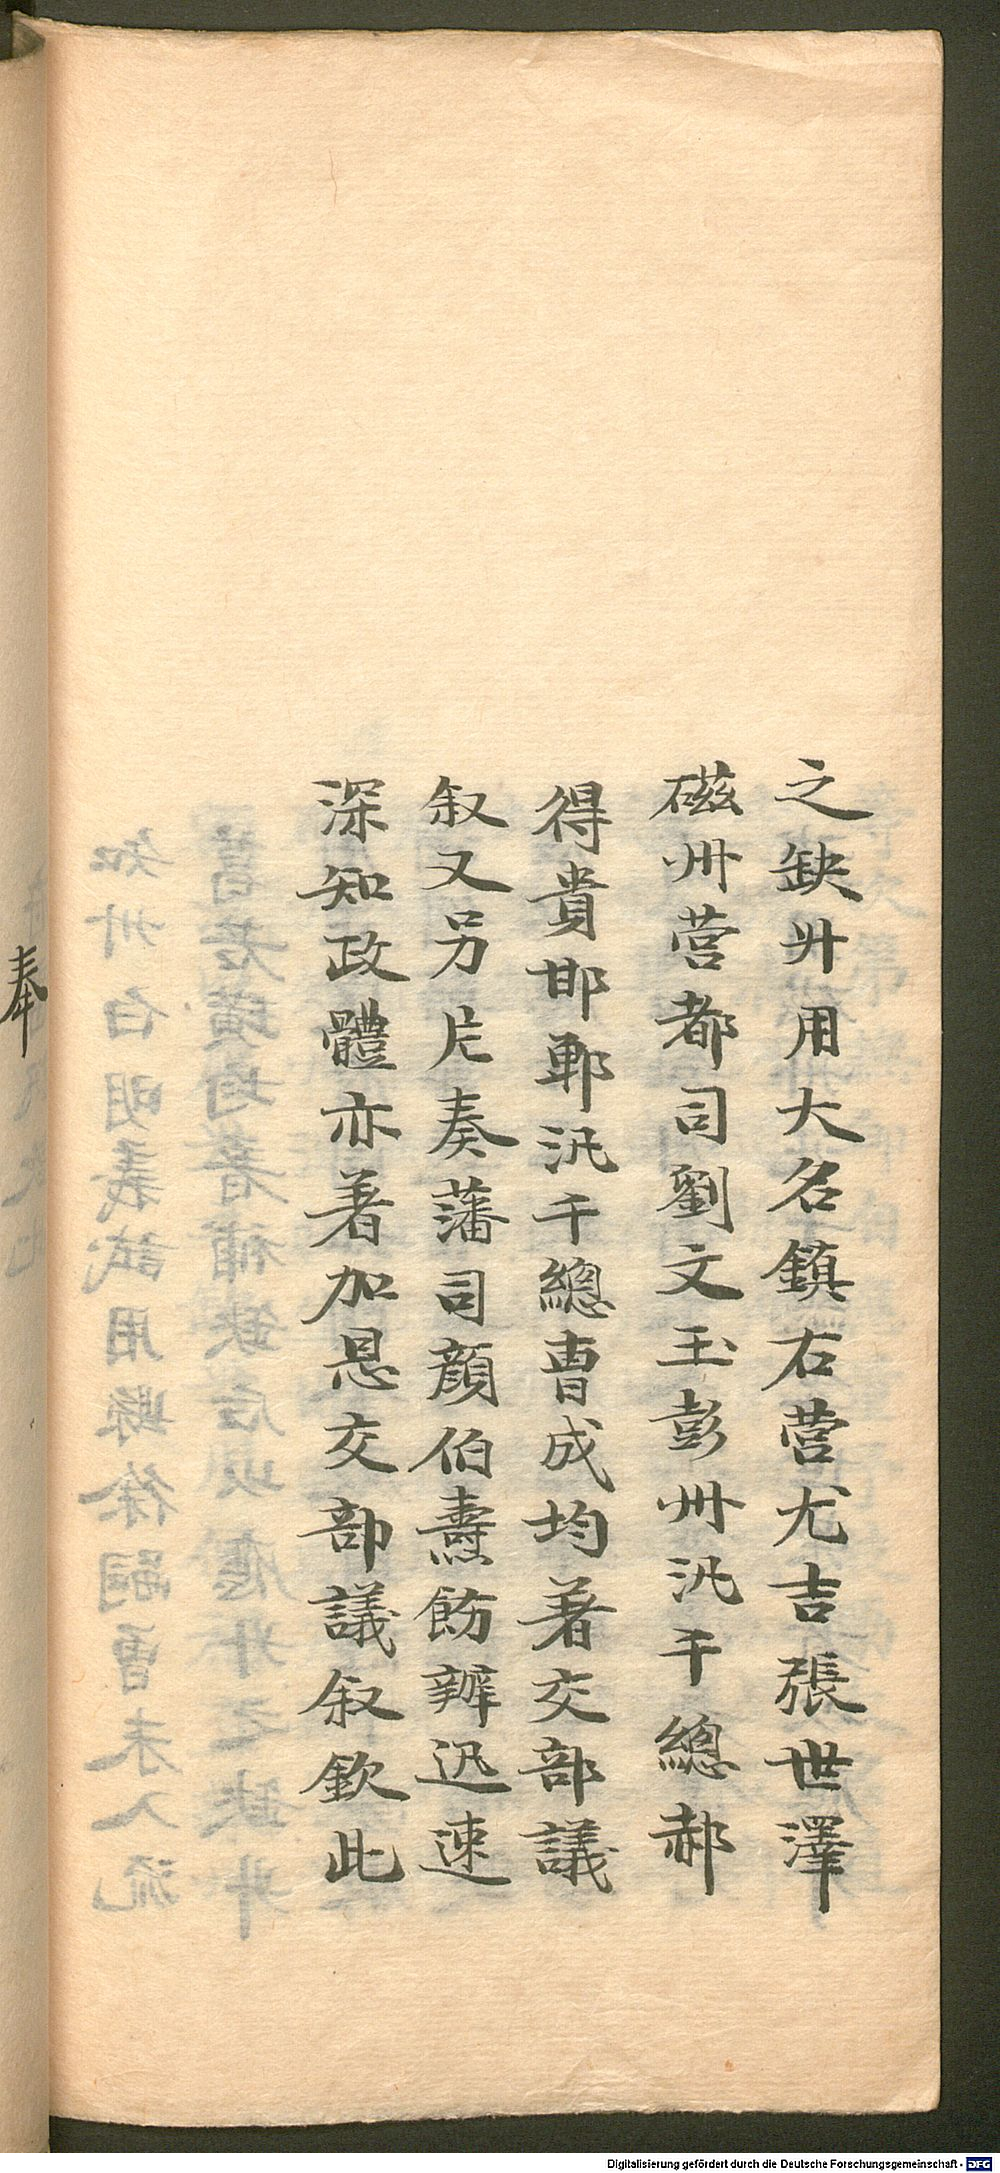 之缺升用大名鎮右营尤吉張世澤
磁州营都司劉文玉彭州汛千總郝
得貴邯鄲汛千總曺成均著交部議
叙又另片奏藩司顔伯燾飭辦迅速
深知政體亦著加恩交部議叙欽此
奉
Digitalisierung gefördert durch die Deutsche Forschungsgemeinschaft - DFG